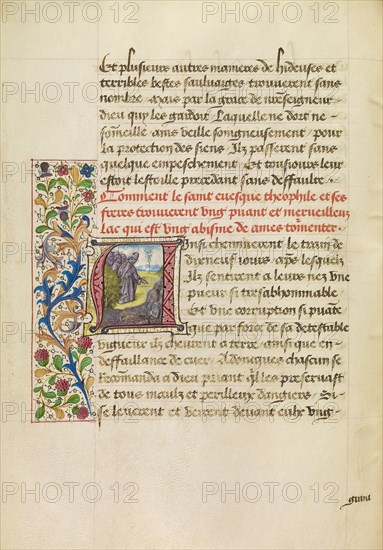 Et plusieurs autres manieres de hideuses et
terribles bestes sauluaiges trouuerent sans
nombre. Mais par la grace de nreseigneur
dieu quy les gardoit Laquelle ne dort ne
someille ains veille songneusement pour
la protection des siens Ilz passerent sans
quelque empeschement Et tousiours leur
estoit lestoille precedant sans deffaulte.
Comment le saint euesque theophile et ses
freres trouuerent vng puant et merueilleux
Lac qui est vng abisme de ames tormenter.
Ainsi cheminerent le train de
dixneuf iours aps lesquelz
Ilz sentirent a leurs nez vne
pueur si tresabhommable
Et vne corruption si puate
que par force de sa detestable
vigueur ilz cheurent a terre, ainsi que en
deffaillance de cuer. Adoncques chascun se
Recomanda a dieu priant qil les preseruast
de tous maulz et perilleux dangiers. Si
se leuerent et veirent deuant eulx vng
PHOTO12